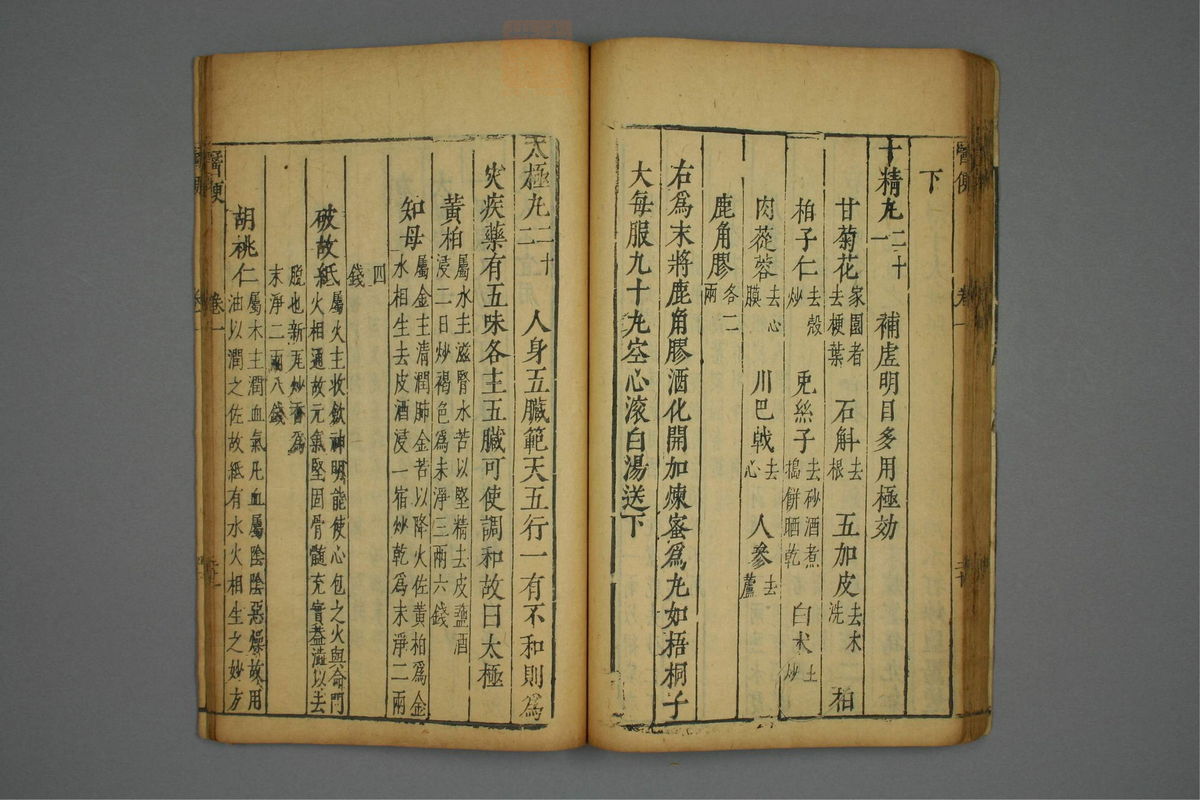 下
十精丸二十一 補虛明目多用極効
甘菊花家園者去梗葉 石斛去根 五加皮去木洗 柏
柏子仁去殼炒 兎絲子去砂酒煮搗餅晒乾 白朮土炒
肉蓯蓉去心膜 川巴戟去心 人參去蘆
鹿角膠各二兩
右爲末將鹿角膠酒化開加煉蜜爲丸如梧桐子
大每服九十丸空心滾白湯送下
太極丸二十二 人身五臟範天五行一有不和則爲
灾疾藥有五味各主五臟可使調和故曰太極
黃柏屬水主滋腎水苦以堅精去皮鹽酒浸二日炒褐色爲末淨三兩六錢
知母屬金主清潤肺金苦以降火佐黃柏爲金水相生去皮酒浸一宿炒乾爲末淨二兩
四錢
破故紙屬火主收斂神明能使心包之火與命門火相通故元氣堅固骨髓充實蓋澁以去
脫也新瓦炒香爲末淨二兩八錢
胡桃仁屬木主潤血氣凡血屬陰陰惡燥故用油以潤之佐故紙有水火相生之妙方
醫便 卷一